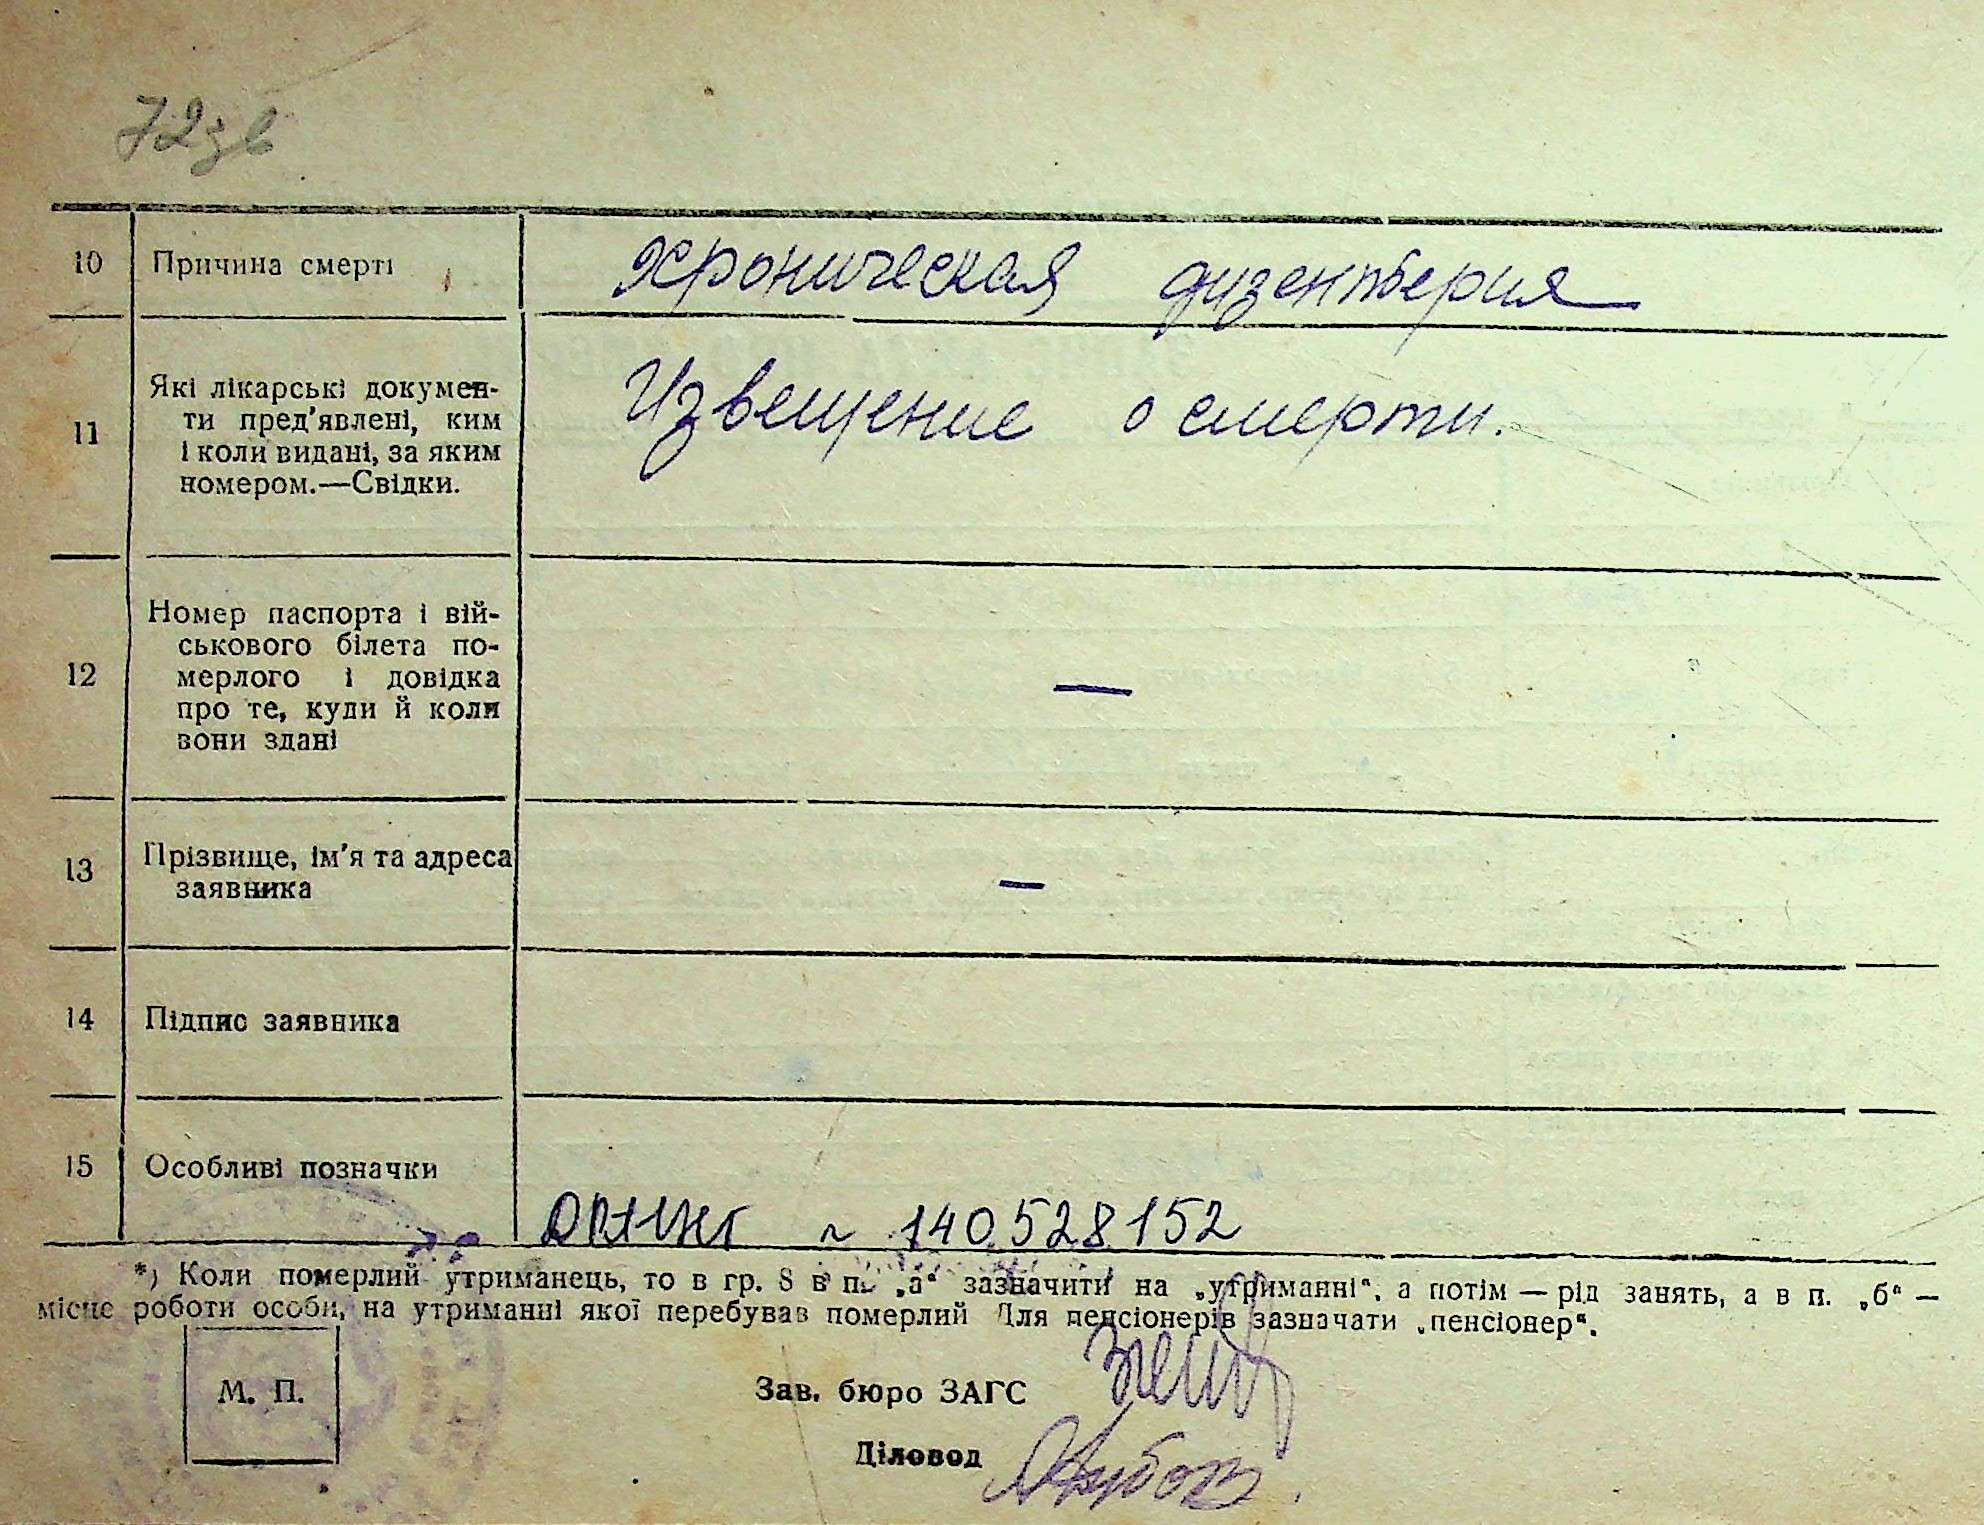 72зв
10 Причина смерті Хроническая дизентерия
11 Які лікарські докумен-
ти пред'явлені, ким
і коли видані, за яким
номером.—Свідки.
Извещение о смерти.
12 Номер паспорта і вій-
ськового білета по-
мерлого і довідка
про те, куди й коли
вони здані
—
13 Прізвище, ім'я та адреса
заявника
—
14 Підпис заявника
15 Особливі позначки
140528152
*) Коли померлий утриманець, то в гр. 8 в п. „а“ зазначити на „утриманні“, а потім — рід занять, а в п. „б“ —
місце роботи особи, на утриманні якої перебував померлий Для пенсіонерів зазначати „пенсіонер“.
М. П.
Зав. бюро ЗАГС
Діловод